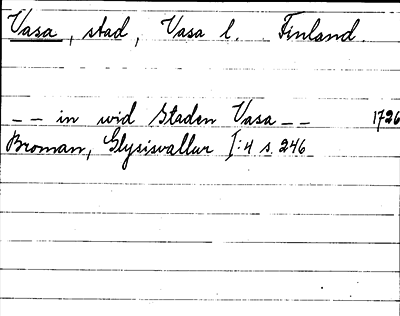 Vasa, stad, Vasa l. Finland.
_ _ in wid Staden Vasa _ _ 1726
Broman, Glysisvallur I:4 s. 246